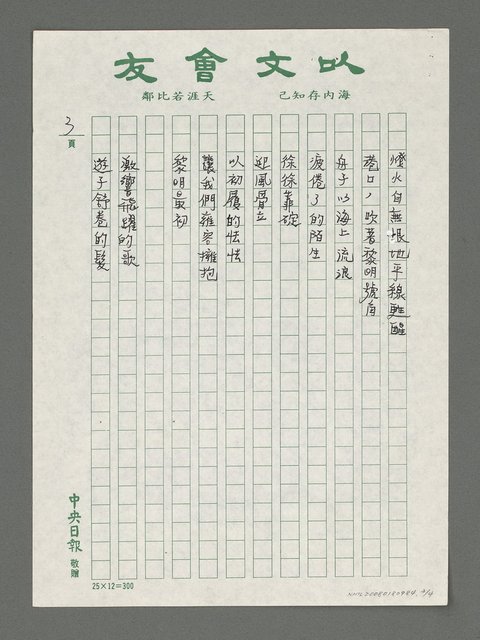 以文會友
海內存知己　天涯若比鄰
3頁
燈火自無垠地平線甦醒
港口，吹著黎明號角
舟子以海上流浪
疲倦了的陌生
徐徐靠碇
迎風昂立
以初履的怯怯
讓我們雍容擁抱
黎明最初
激響飛躍的歌
遊子舒卷的髮
中央日報 敬贈
25×12=300